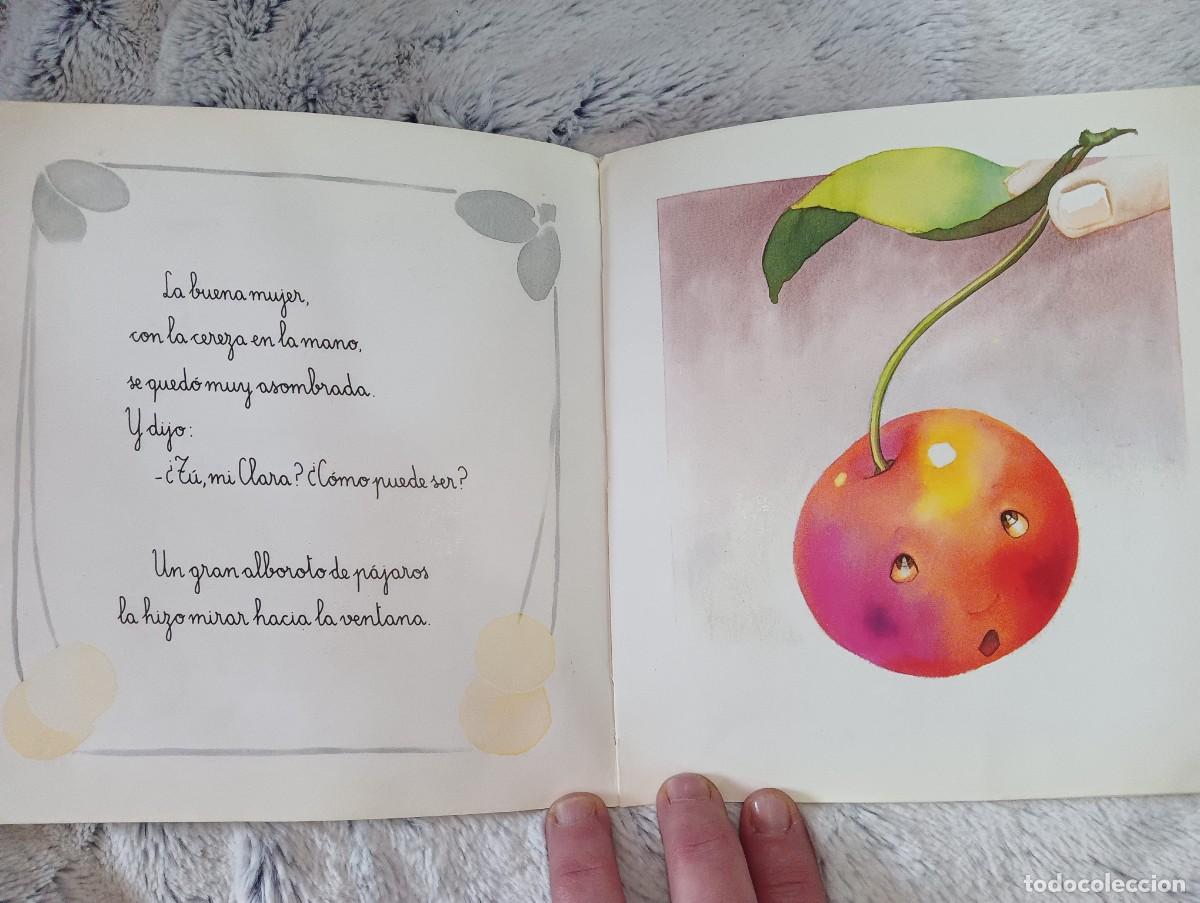 La buena mujer,
con la cereza en la mano,
se quedó muy asombrada.
Y dijo:
-¿Tú, mi Clara? ¿Cómo puede ser?
Un gran alboroto de pájaros
la hizo mirar hacia la ventana.
todocoleccion